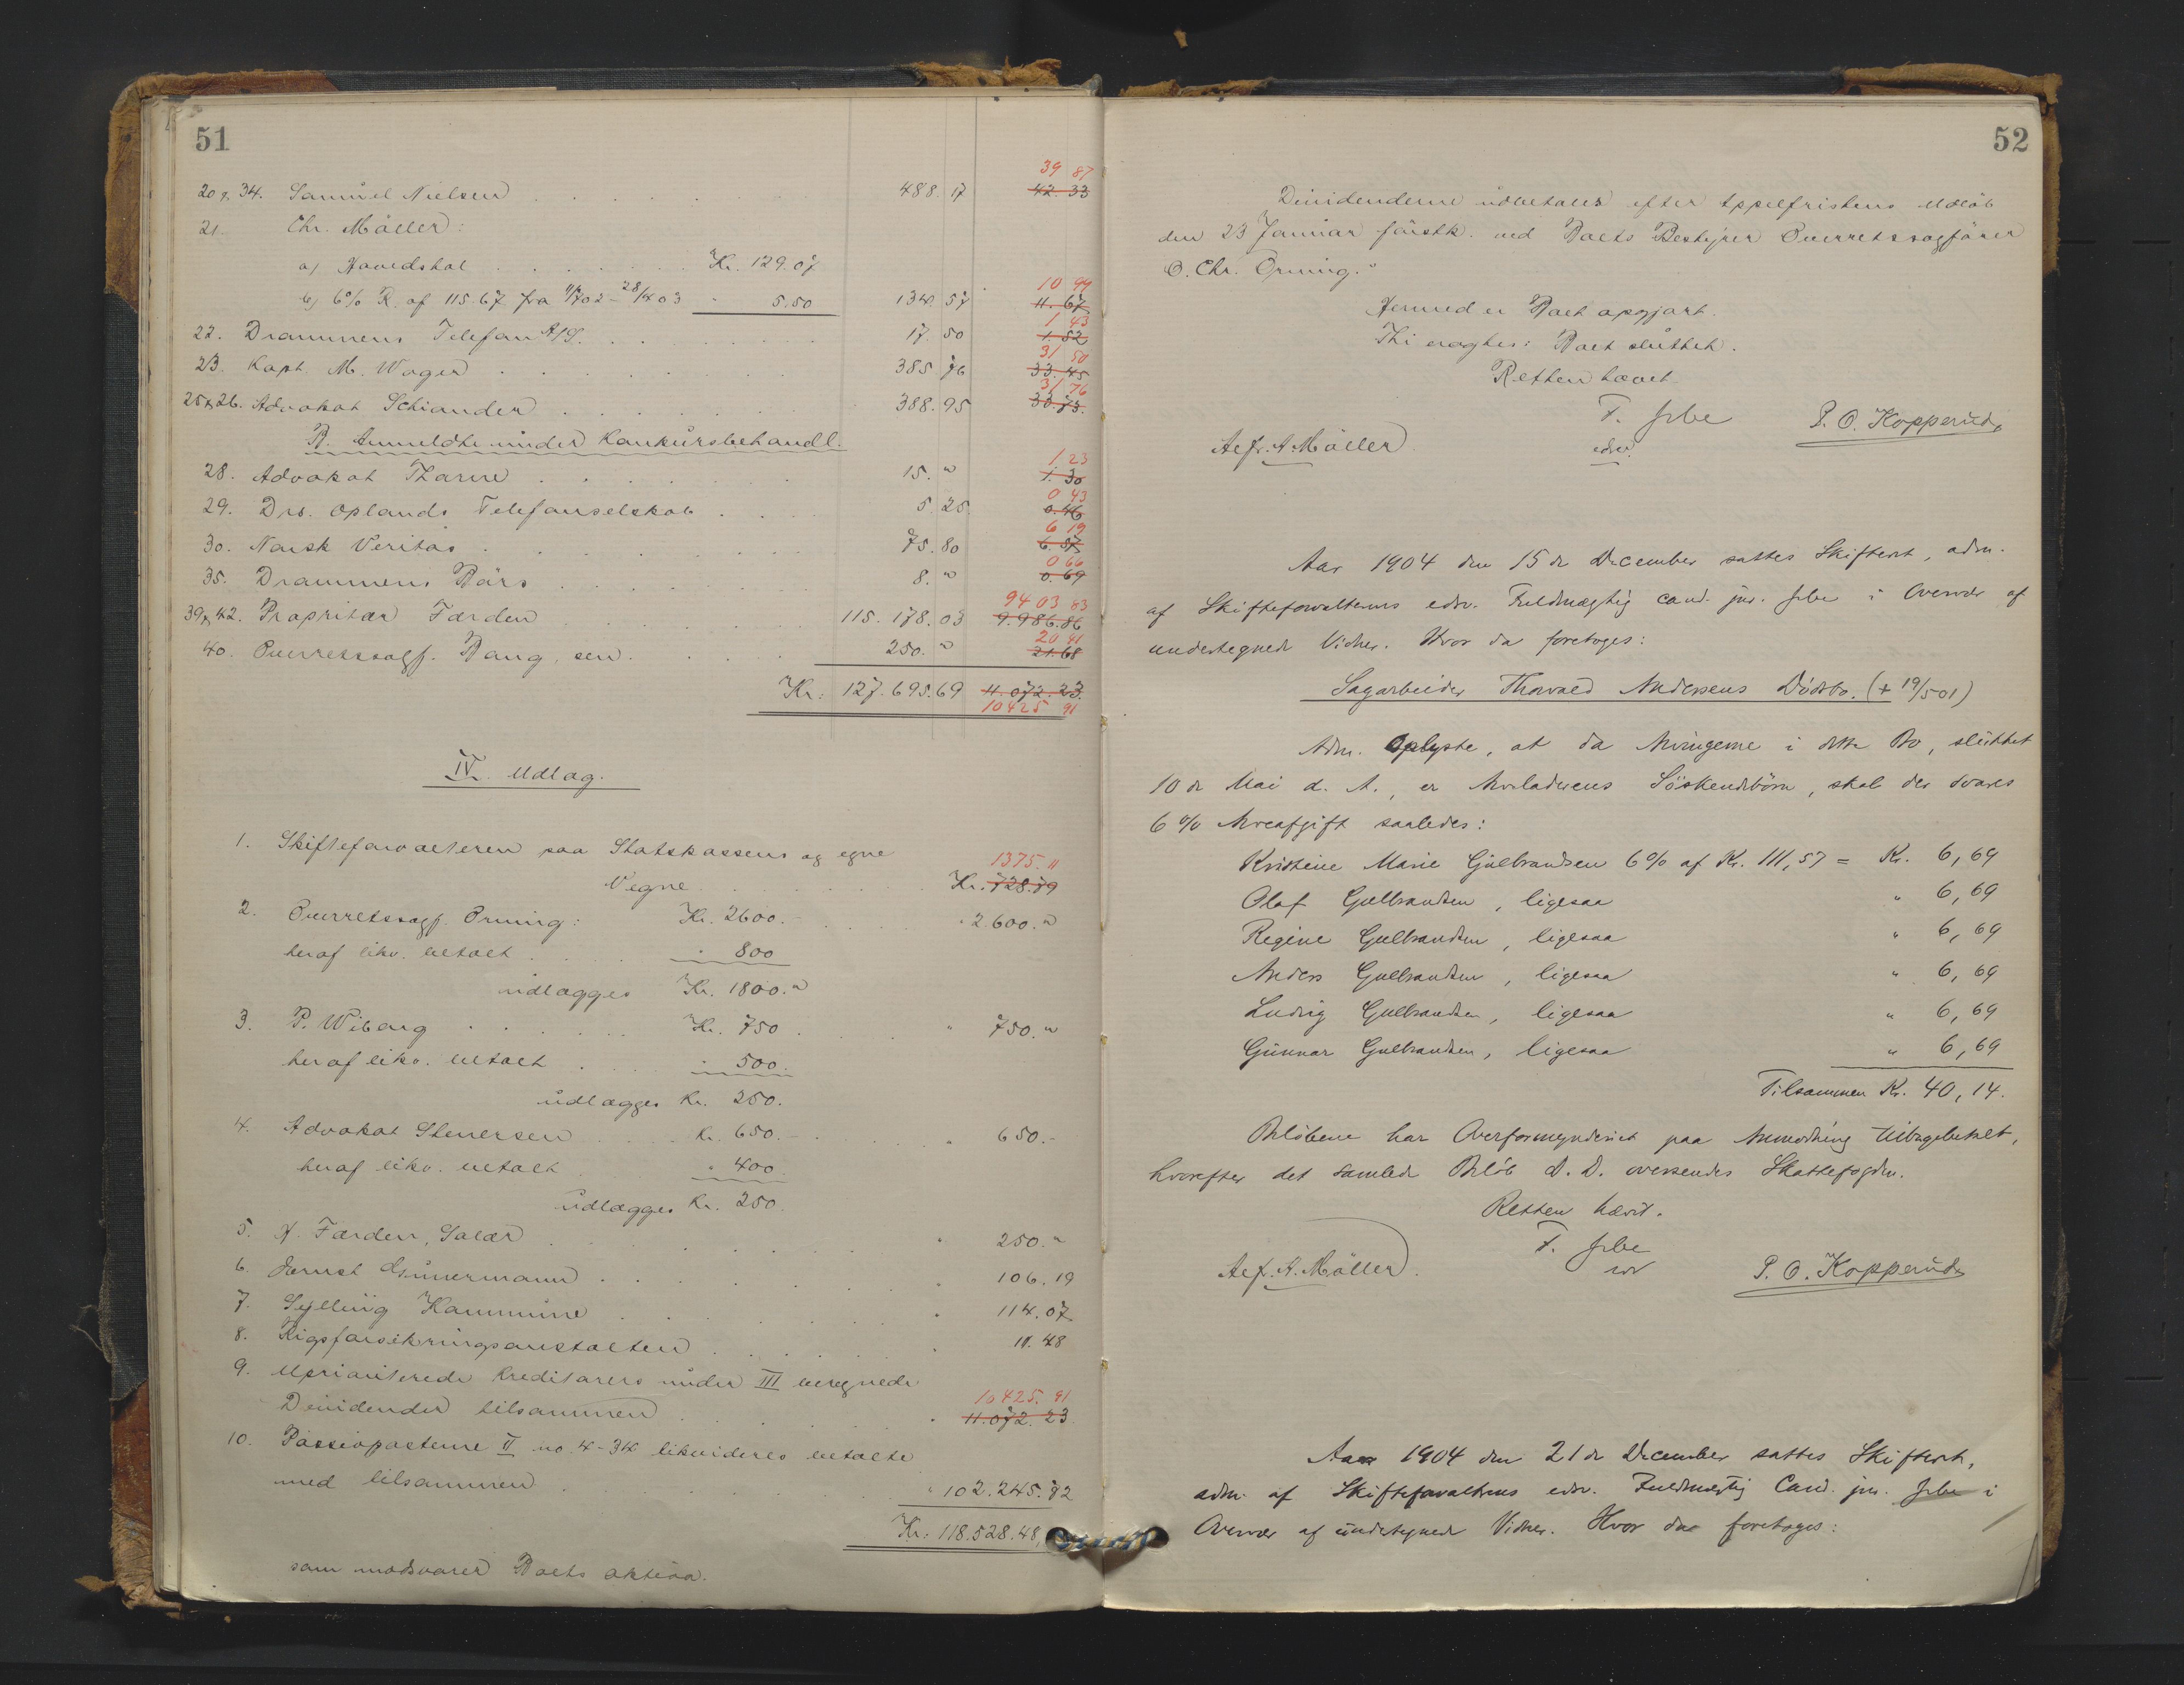 51
39 87
20 & 34. Samuel Nielsen . . . . . . 488. 17 42. 33
21. Chr. Möller:
a) Hovedstol . . . . . . Kr. 129.07
10 99
b) 6% R. af 115.67 fra 11/7 02 - 28/4 03 " 5,50 134. 57 11. 67
1 43
22. Drammens Telefon A/S. . . . . . . 17. 50 1. 52
31 50
23. Kapt. M. Wager . . . . . . 385. 76 33. 45
31 76
25 & 26. Advokat Schiander . . . . . . 388. 95 33. 73.
B. Anmeldte under Konkursbehandl.
1 23
28. Advokat Thorne . . . . . . 15. " 1. 30
0 43
29. Drs. Oplands Telefonselskab . . . 5. 25 0. 46
6 19
30. Norsk Veritas . . . . . . 75. 80 6. 57
0 66
35. Drammens Börs . . . . . . 8. " 0. 69
9403 83
39 & 42. Propritær Færden . . . . . 115. 178. 03 9. 986. 86
20 41
40. Overretssagf. Bang, sen. . . . . 250. " 21. 68
Kr: 127. 695. 69 11. 072. 23.
10425 91
IV. Udlæg.
1. Skifteforvalteren paa Statskassens og egne
1375. 11
Vegne . . . . . . Kr. 728. 79
2. Overretssagf. Orning: Kr. 2600. - . . . " 2.600. "
heraf likv. betalt . . . " 800
udlægges Kr. 1800. "
3. P. Wiborg . . . . . Kr. 750 . . . " 750. "
heraf likv. betalt . . . " 500.
udlægges Kr. 250.
4. Advokat Stenersen . . . Kr. 650. - . . . " 650. -
heraf likv. betalt . " 400.
udlægges Kr. 250.
5. H. Færden, Salær . . . . . . " 250. "
6. Hermann . . . . . . " 106. 19
7. Sylling Kommune . . . . . . " 114. 07
8. Rigsforsikringsanstalten . . . . . . " 11. 48
9. Uprioriterede Kreditorers under III beregnede
10425. 91
Dividender tilsammen . . . . . " 11. 072. 23
10. Passivposterne II no. 4-34 likvideres betalte
med tilsammen . . . . . . " 102. 245. 72
Kr: 118. 528. 48,
som modsvarer Boets aktiva.
52
Dividenderne udbetales efter Appelfristens Udløb
den 23 Januar förstk. ved Boets Bestyrer Overretssagförer
O. Chr. Orning."
Hermed er Boet opgjort.
Thi eragtes: Boet sluttet.
Retten hævet.
T. P. O. Kopperud
Aef. A. Möller edsv.
Aar 1904 den 15 de December sattes Skifteret, adm.
af Skifteforvalterens edsv. Fuldmægtig cand. jur. i Overvær af
undertegnede Vidner. Hvor da foretoges:
Sagarbeider Thorvald Andersens Dödsbo. (+ 19/5 01)
Adm. Oplyste, at da Arvingerne i dette Bo, sluttet
10 de Mai d. A., er Arveladerens Söskendebörn, skal der svares
6 % Arveafgift saaledes:
Kristine Marie Gulbrandsen 6% af Kr. 111,57 = Kr. 6, 69
Olaf Gulbrandsen, ligesaa " 6, 69
Regine Gulbrandsen, ligesaa " 6, 69
Anders Gulbrandsen, ligesaa " 6, 69
Ludvig Gulbrandsen, ligesaa " 6, 69
Gunnar Gulbrandsen, ligesaa " 6, 69
Tilsammen Kr. 40, 14.
Belöbene har Overformynderiet paa Anmodning tilbagebetalt,
hvorefter det samlede Belöb D. D. oversendes Skattefogden.
Retten hævet.
T.
Aef. A. Möller edsv P. O. Kopperud
Aar 1904 den 21 de December sattes Skifteret,
adm. af Skifteforvalterens edsv. Fuldmægtig Cand. jur. i
Overvær af undertegnede Vidner. Hvor da foretoges: